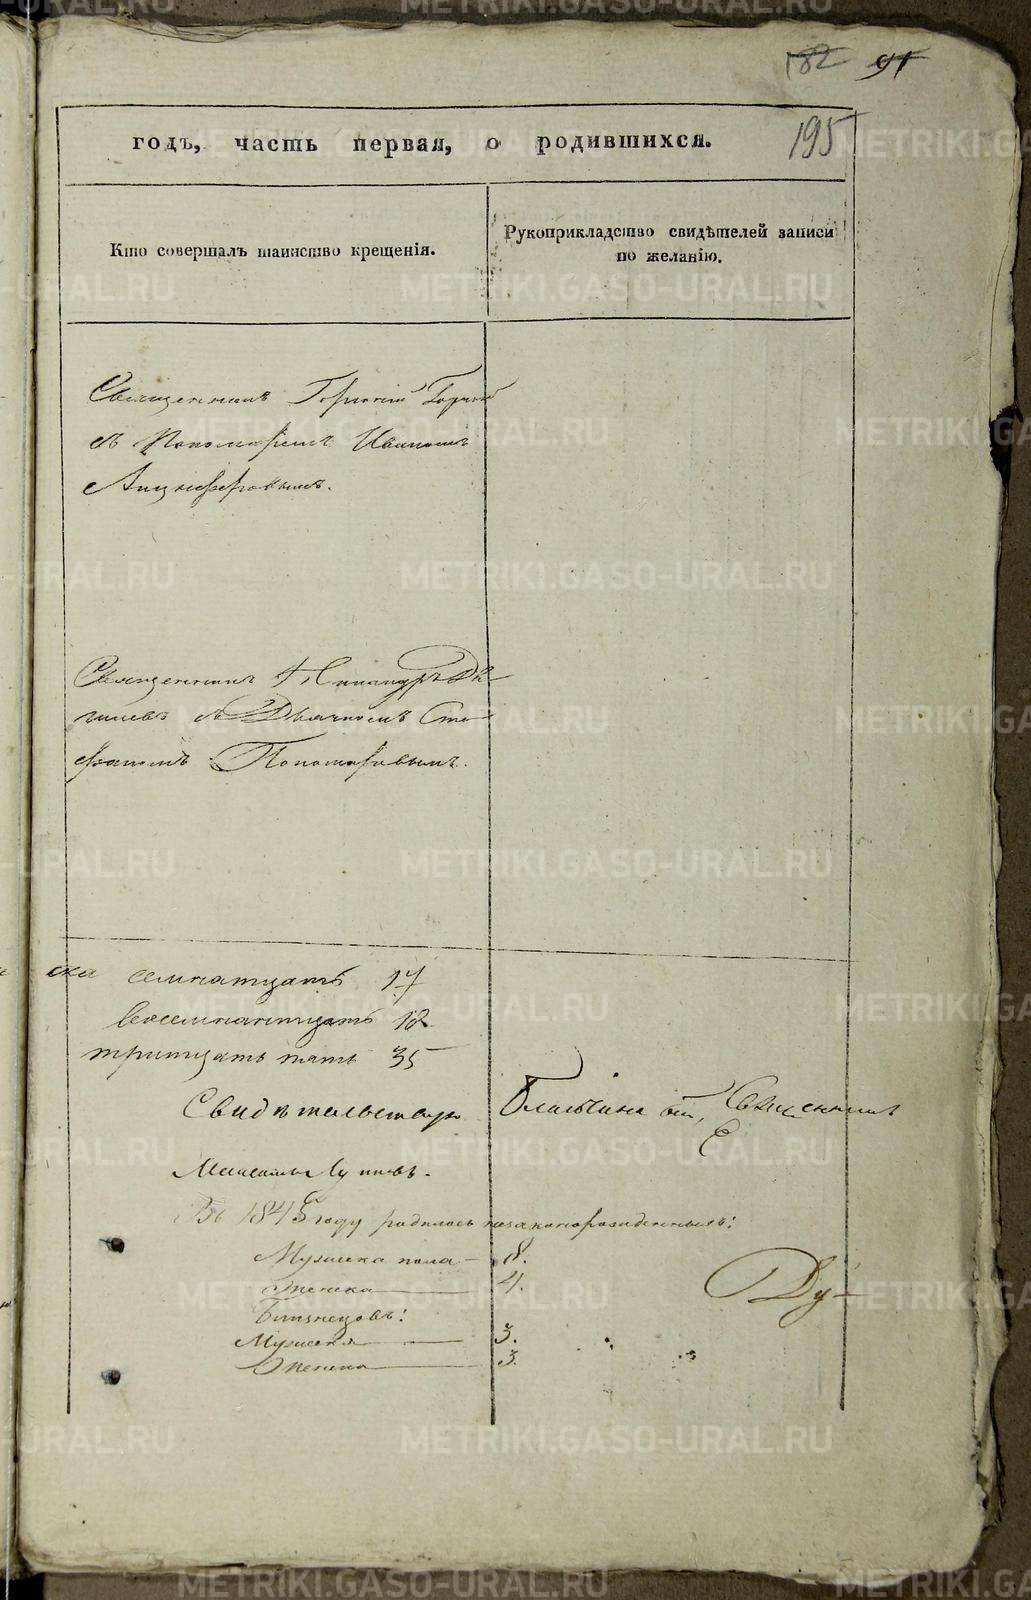 182 91
195
годъ, часть первая, о родившихся.
Кто совершалъ таинство крещенія.
Рукоприкладство свидѣтелей записи
по желанію.
Священникъ
съ Пономаремъ Иваномъ
Анциферовымъ.
Священникъ Никандръ
съ Дьячкомъ Сте-
фаномъ Пономаревымъ.
ска семнатцать 17
восемнантцать 18
тритцать пять 35
Свидѣтельствую Священникъ
Луповъ.
Въ 1845 году родилось незаконорожденныхъ:
Мужеска пола — 8.
Женска 4.
Близнецовъ:
Мужеска 3.
Женска 3.
METRIKI.GASO-URAL.RU